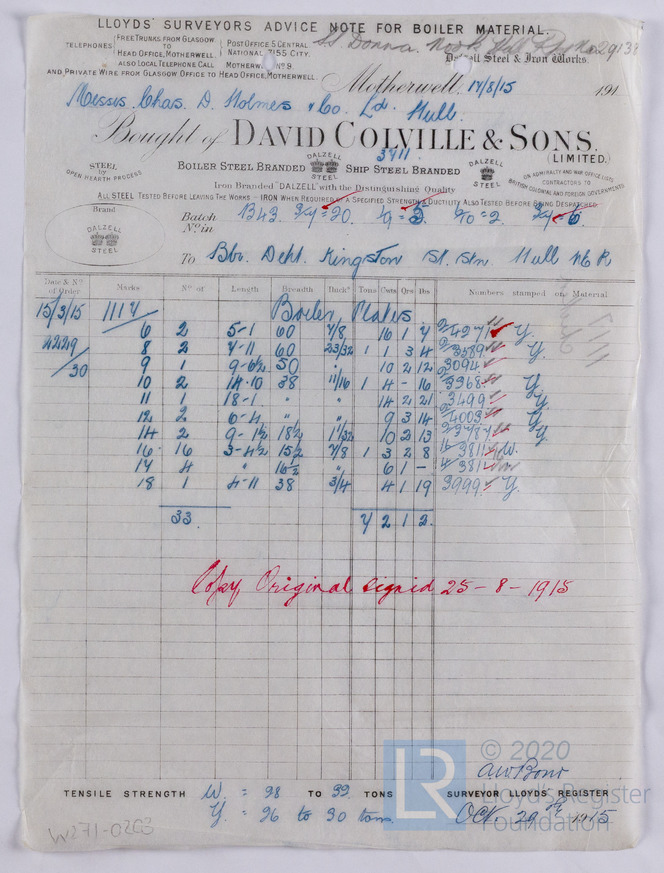 LLOYDS' SURVEYORS ADVICE NOTE FOR BOILER MATERIAL.
S.S. Donna. Hull Rpt No 29138
TELEPHONES { FREE TRUNKS FROM GLASGOW TO HEAD OFFICE, MOTHERWELL. ALSO LOCAL TELEPHONE CALL
POST OFFICE 5 CENTRAL
NATIONAL 7155 CITY.
MOTHERWELL Nº 9.
AND PRIVATE WIRE FROM GLASGOW OFFICE TO HEAD OFFICE, MOTHERWELL.
Dalzell Steel & Iron Works
Motherwell, 17/8/15 191
Messrs. Chas. D. Holmes & Co. Ld. Hull.
Bought of DAVID COLVILLE & SONS.
(LIMITED.)
3911
STEEL by OPEN HEARTH PROCESS
BOILER STEEL BRANDED DALZELL STEEL SHIP STEEL BRANDED DALZELL STEEL
ON ADMIRALTY AND WAR OFFICE LISTS
CONTRACTORS TO
BRITISH COLONIAL AND FOREIGN GOVERNMENTS
Iron Branded "DALZELL" with the Distinguishing Quality
ALL STEEL TESTED BEFORE LEAVING THE WORKS – IRON WHEN REQUIRED OF A SPECIFIED STRENGTH & DUCTILITY ALSO TESTED BEFORE BEING DESPATCHED.
Brand
DALZELL STEEL
Batch Nº in 1343
To Blr. Dept. Kingston St. Stn. Hull N E R
Date & Nº of Order Marks Nº of Length Breadth Thick? Tons Cwts Qrs lbs Numbers stamped on Material
15/3/15 1114 Boiler Plates
6 2 5-1 60 7/8 16 1 4 Y.
4229/30 8 2 4-11 60 23/32 1 1 3 4 3589 Y.
9 1 9-6½ 50 " 10 2 12 3094
10 2 14-10 38 11/16 1 4 - 16 3368 Y
11 1 18-1 " " 14 2 21 3499 Y
12 2 6-4 " " 9 3 14 4003 Y
14 2 9-1½ 18½ 1 1/32 10 2 13 Y
16 16 3-4½ 15½ 7/8 1 3 2 8 381 W.
17 4 " 16½ " 6 1 - 381
18 1 4-11 38 3/4 4 1 19 3999 Y.
33. 7 2 1 2.
Copy Original signed 25-8-1915
© 2020
Lloyd's Register
Foundation
LR
TENSILE STRENGTH W. = 28 TO 32 TONS
Y. = 26 to 30 tons.
SURVEYOR LLOYDS' REGISTER
Oct. 29th 1915
W271-0203